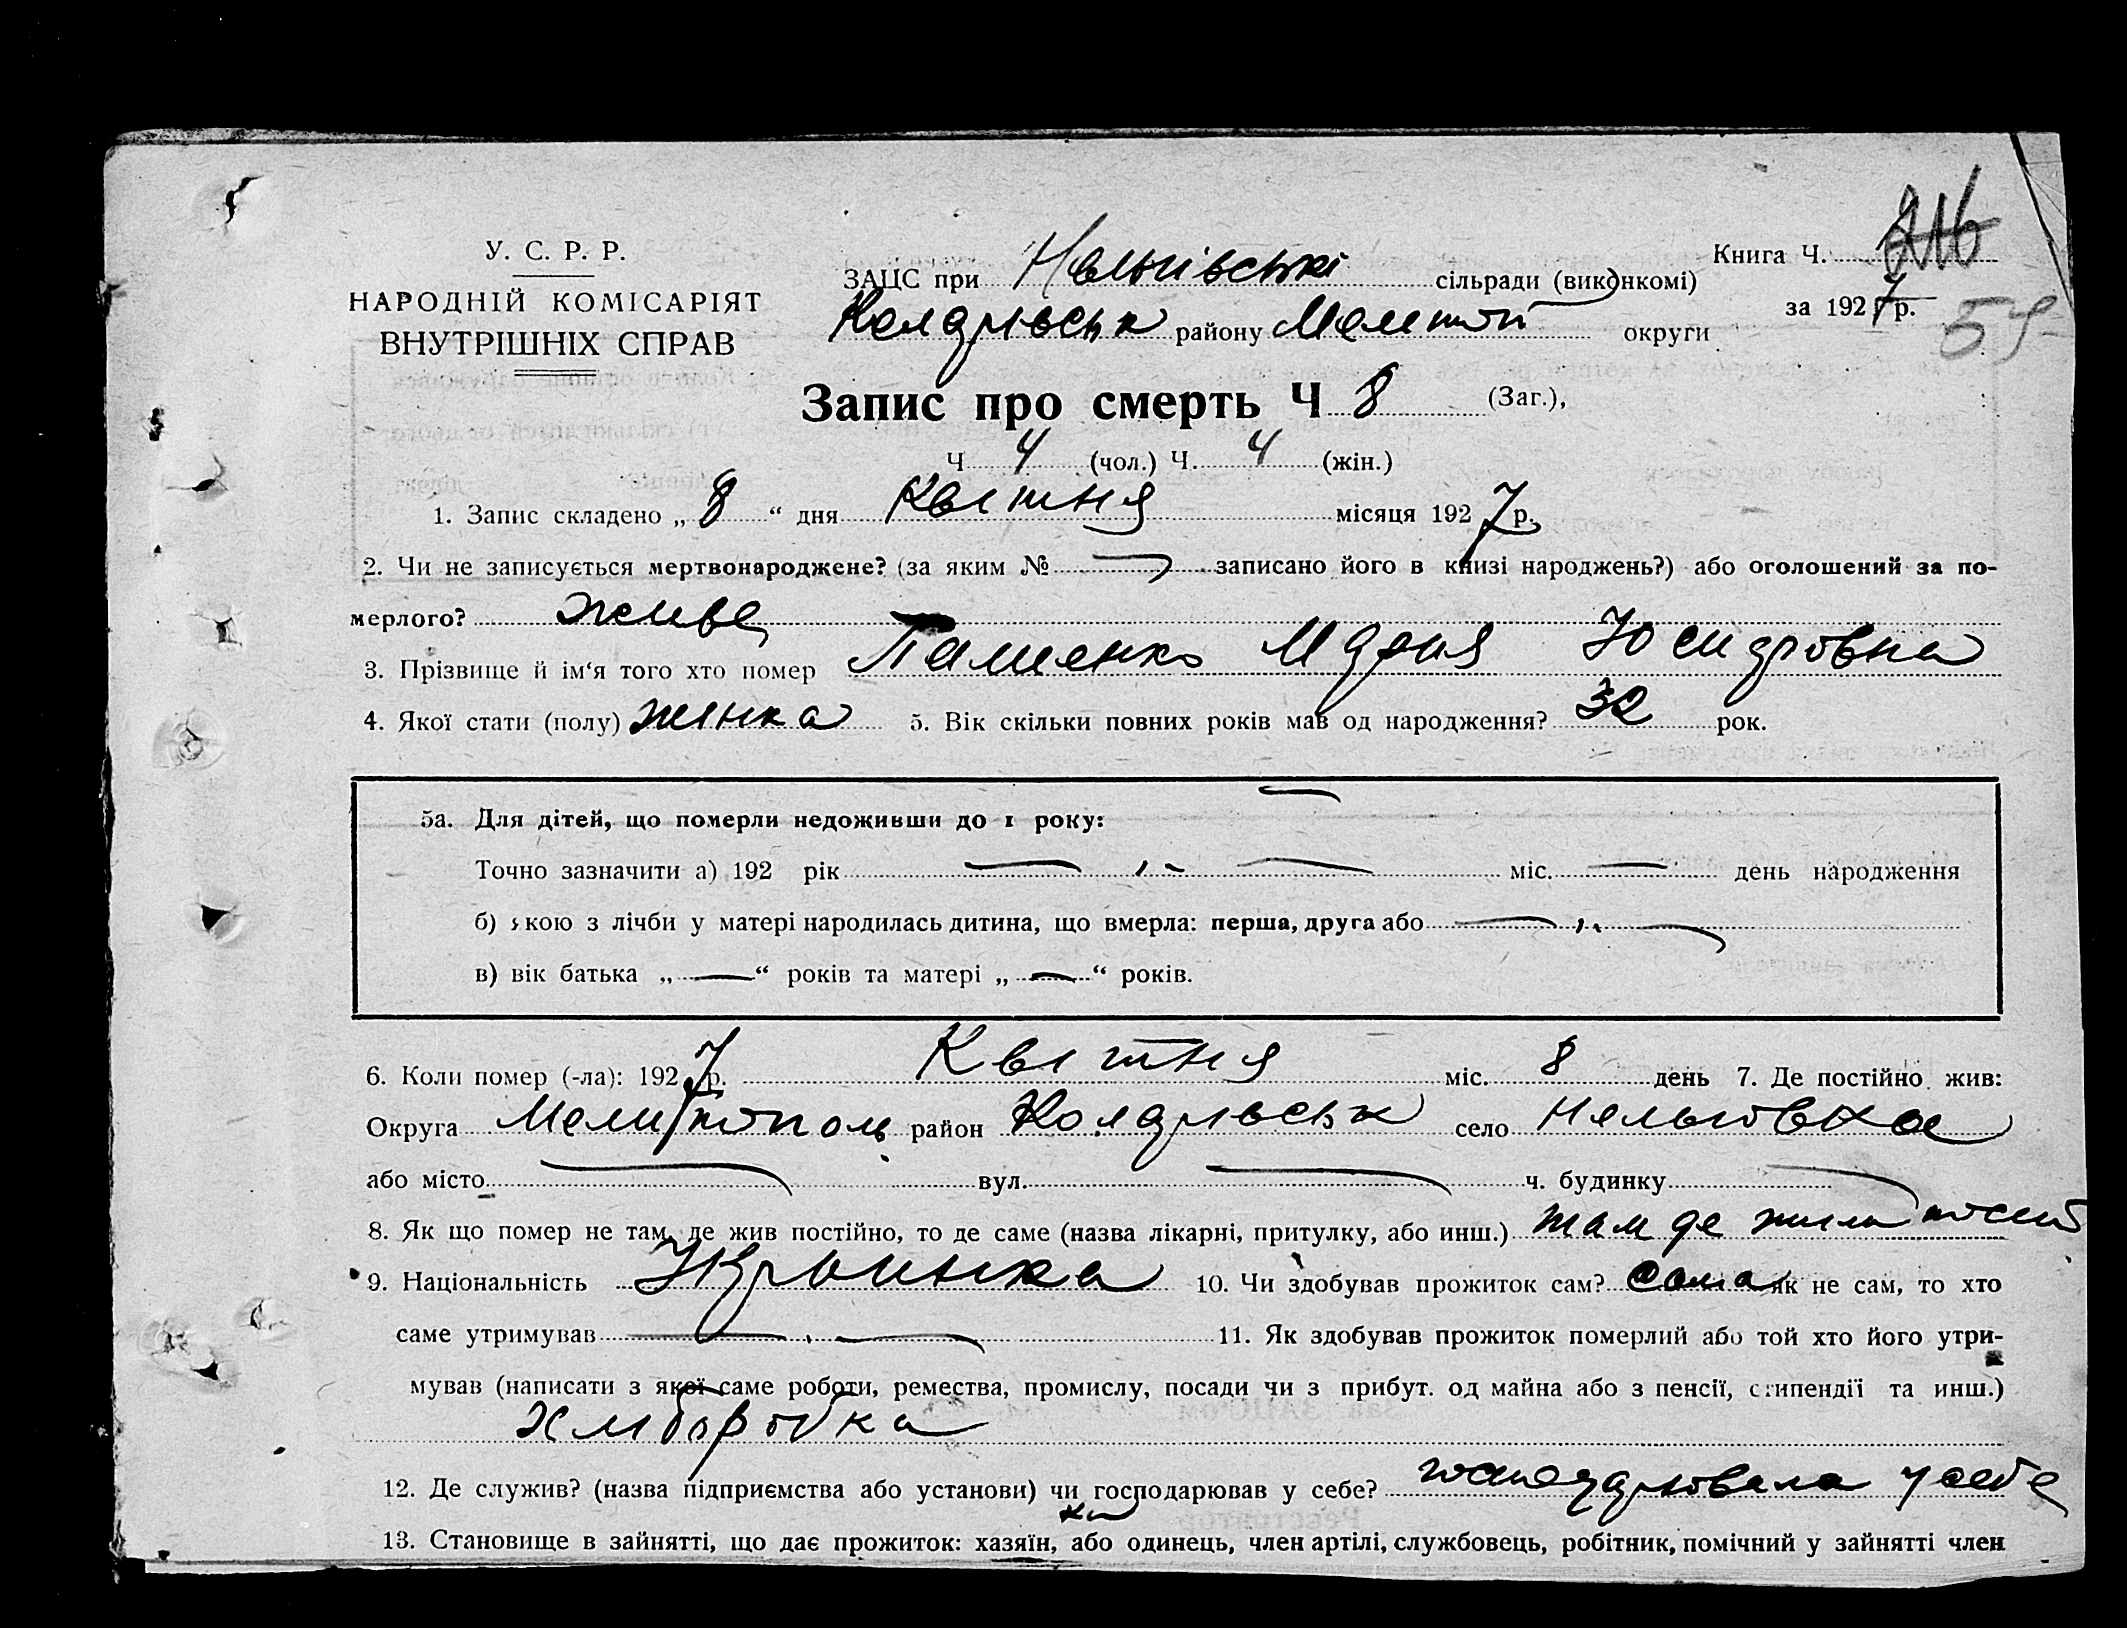 У. С. Р. Р.
НАРОДНІЙ КОМІСАРІЯТ
ВНУТРІШНІХ СПРАВ
Книга Ч.
за 1927 р.
ЗАЦС при сільради (виконкомі)
району округи
Запис про смерть Ч 8 (Заг.),
Ч 4 (чол.) Ч. 4 (жін.)
1. Запис складено „ 8 “ дня Квітня місяця 1927 р.
2. Чи не записується мертвонароджене? (за яким № — записано його в книзі народжень?) або оголошений за по-
мерлого? живе
3. Прізвище й ім‘я того хто помер Пашенко Мария
4. Якої стати (полу) жінка 5. Вік скільки повних років мав од народження? 32 рок.
5а. Для дітей, що померли недоживши до 1 року:
Точно зазначити а) 192 рік — „ — міс. — день народження
б) якою з лічби у матері народилась дитина, що вмерла: перша, друга або — „ —
в) вік батька „ — “ років та матері „ — “ років.
6. Коли помер (-ла): 1927 р. Квітня міс. 8 день 7. Де постійно жив:
Округа Мелитополь район село
або місто — вул. — ч. будинку —
8. Як що помер не там, де жив постійно, то де саме (назва лікарні, притулку, або инш.) там де жила
9. Національність Українка 10. Чи здобував прожиток сам? сама як не сам, то хто
саме утримував — „ — 11. Як здобував прожиток померлий або той хто його утри-
мував (написати з якої саме роботи, ремества, промислу, посади чи з прибут. од майна або з пенсії, стипендії та инш.)
хліборобка
12. Де служив? (назва підприємства або установи) чи господарював у себе? господарювала у себе
13. Становище в зайнятті, що дає прожиток: хазяїн, або одинець, член артілі, службовець, робітник, помічний у зайнятті член